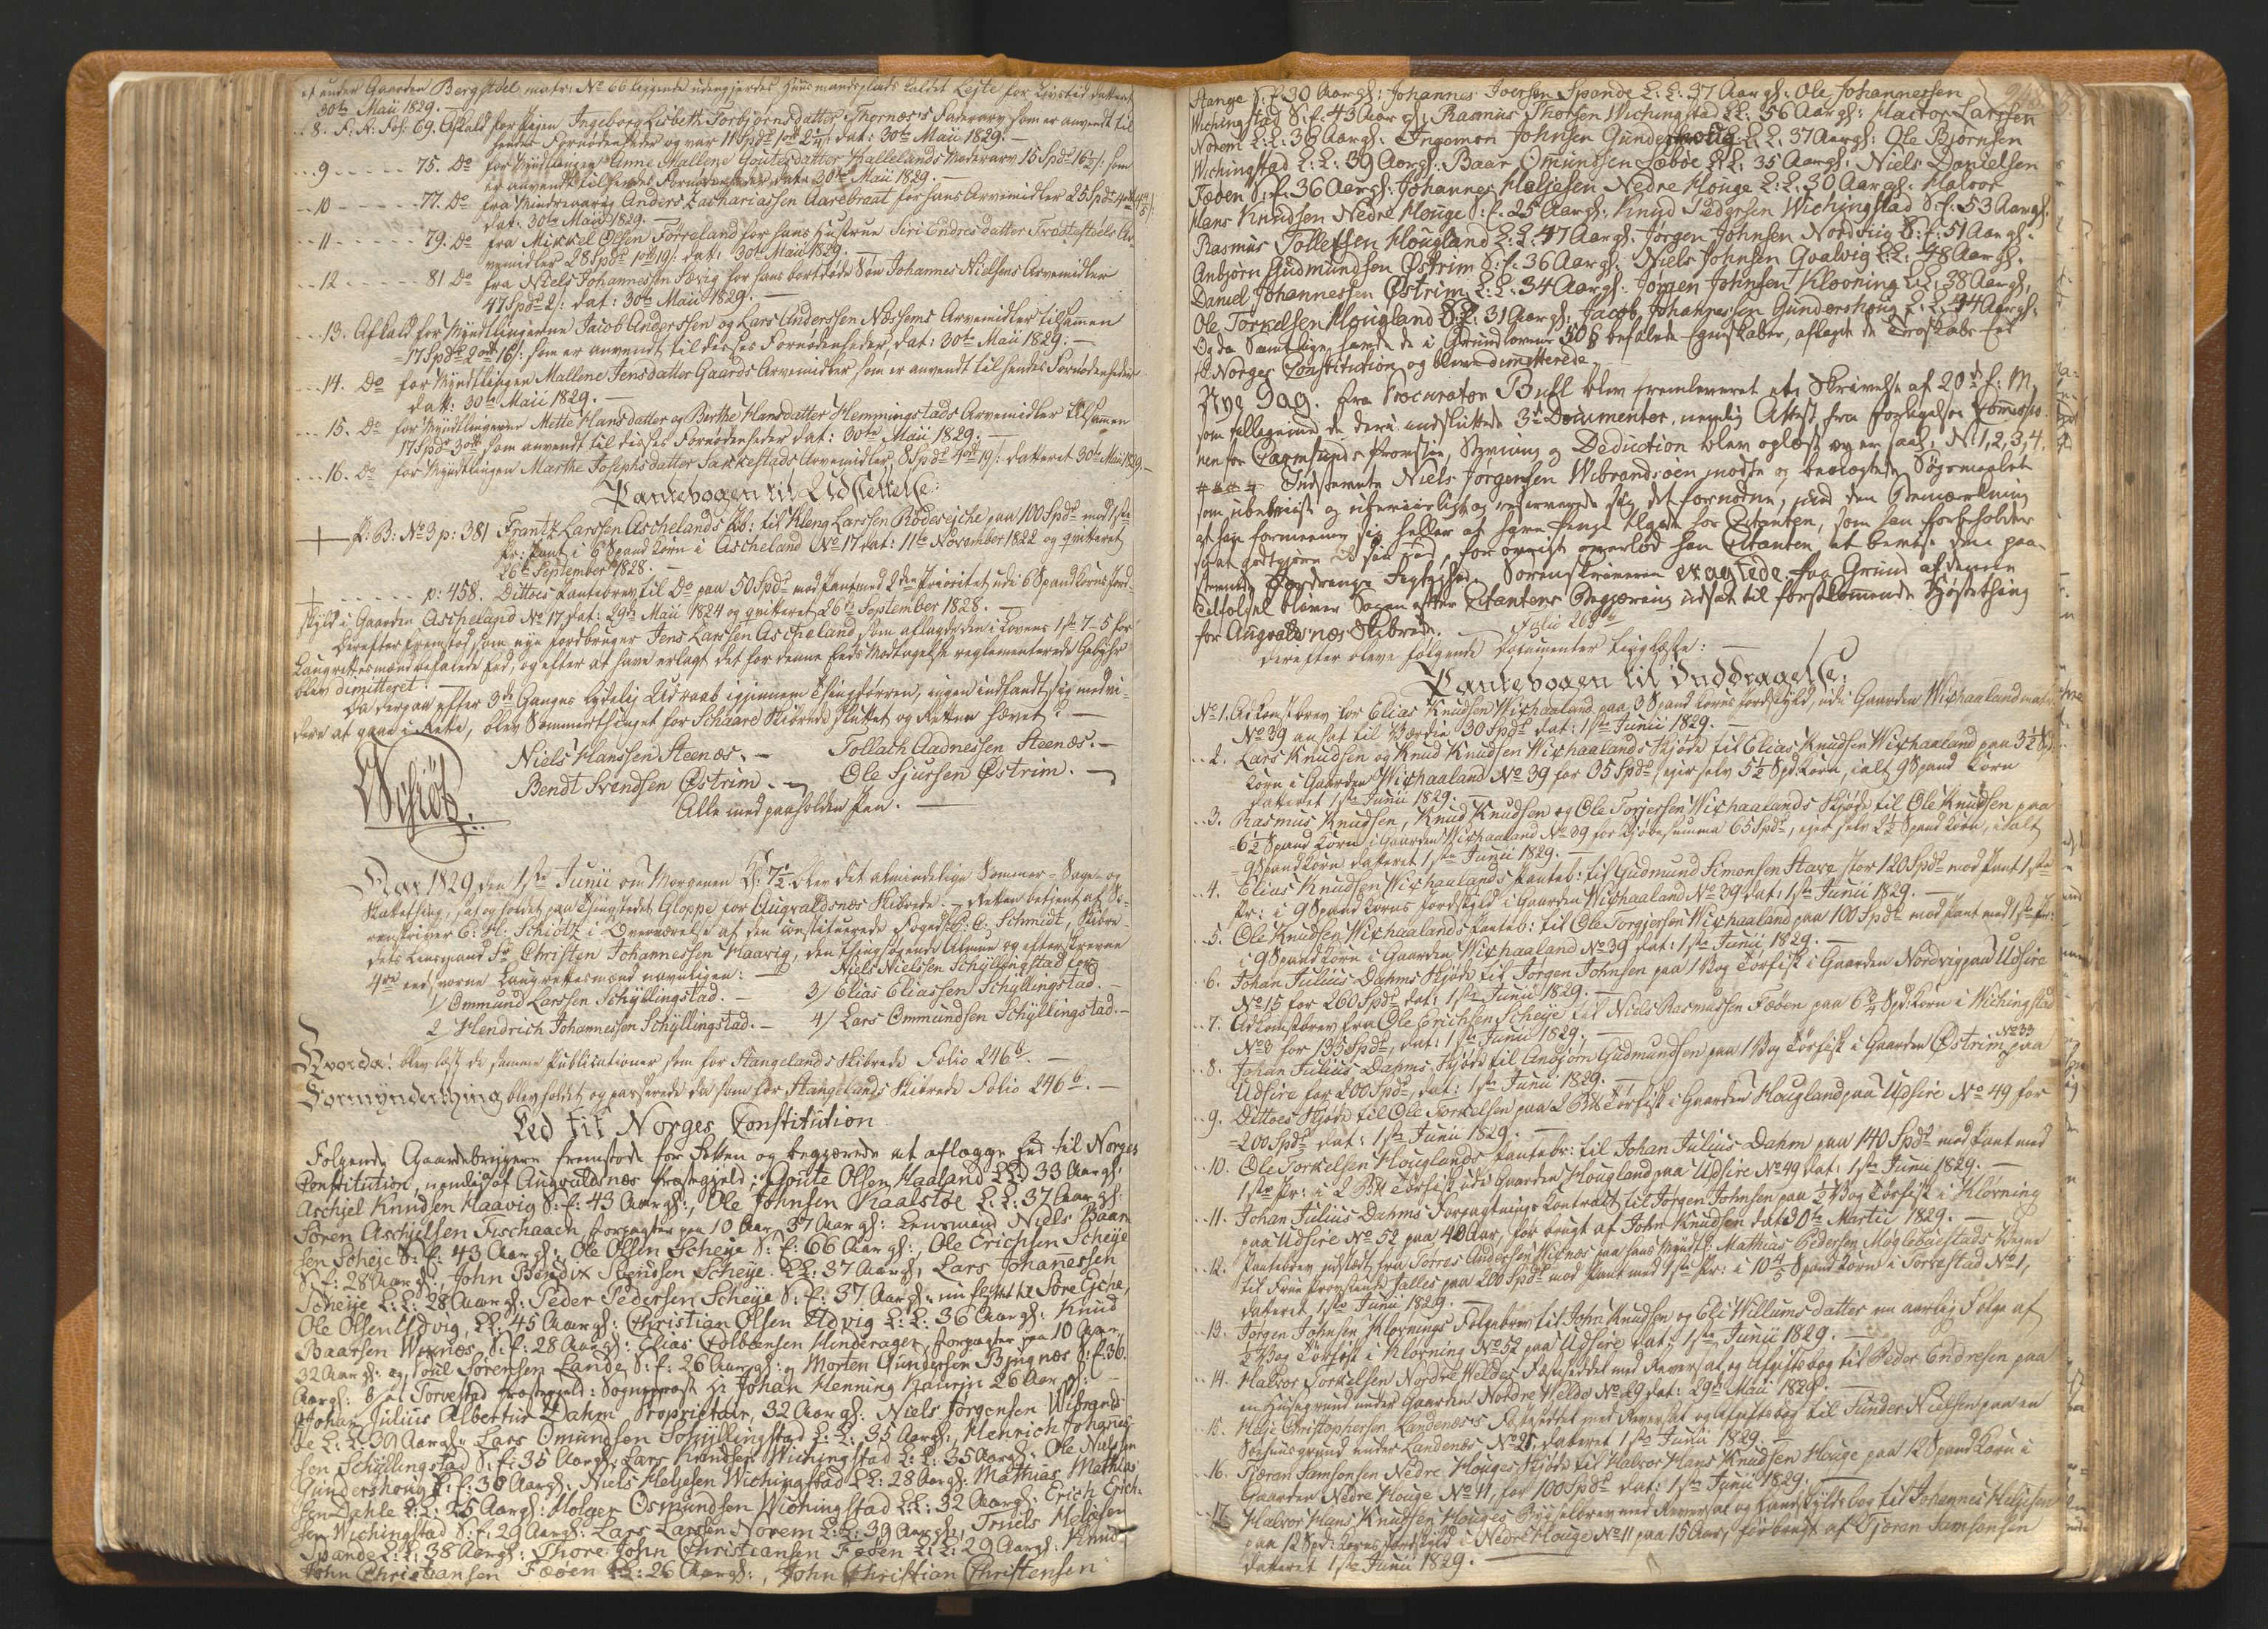 et under Gaarden Bergstöel matr: No 66 liggende udengjerdes Huusmandsplads kaldet Lejte for Livstid datteret
30te Maii 1829. —
8. F: K: Fol: 69. Afkald for Pigen Ingeborg Lisbeth Torbjørnsdatter Thornæs's Faderarv som er anvendt til
hendes Fornødenheder og var 11 Spd 1 ort 2 1/4 s: dat: 30te Maii 1829. —
9 - - - - - 75. Do for Myndlingen Anne Mallene Goutesdatter Kallelands Moderarv 15 Spd 16 1/2 s: som
er anvendt til hendes Fornødenheder dat: 30te Maii 1829. —
10 - - - - - 77. Do fra Mindreaarig Anders Zachariassen Aarebraat for hans Arvemidler 25 Spd 4 ort
dat: 30te Maii 1829. —
11 - - - - - 79. Do fra Mikkel Olsen Førreland for hans Hustrue Siri Endresdatter Frostestöels Ar-
vemidler 28 Spd 1 ort 19 s: dat: 30te Maii 1829. —
12 - - - - - 81 Do fra Niels Johannessen Sævig for hans bortdöde Sön Johannes Nielsens Arvemidler
47 Spd 2 s: dat: 30te Maii 1829. —
13. Afkald for Myndlingerne Jacob Anderssen og Lars Anderssen Næssems Arvemidler tilsamen
17 Spd 2 ort 16 s: som er anvendt til disses Fornødenheder, dat: 30te Maii 1829. —
14. Do for Myndlingen Mallene Jensdatter Gaards Arvemidler som er anvendt til hendes Fornødenheder
dat: 30te Maii 1829. —
15. Do for Myndlingerne Mette Hansdatter og Berthe Hansdatter Hemmingstads Arvemidler tilsamen
17 Spd 3 ort som anvendt til disses Fornødenheder dat: 30te Maii 1829. —
16. Do for Myndlingen Marthe Josephsdatter Sakkestads Arvemidler, 8 Spd 4 ort 19 s: datteret 30te Maii 1829 —
Pantebogen til Udslettelse:
P: B: No 3 p: 381 Frantz Larssen Aschelands Pb: til Kleng Larssen Rödesejche paa 100 Spd mod 1ste
Pr: Pant i 6 Spand Korn i Ascheland No 17 dat: 11te November 1822 og qvitteret
26te September 1828. —
p: 458. Dittoes Pantebrev til Do paa 50 Spd mod Pant med 2den Prioritet udi 6 Spand Korns Jord-
skyld i Gaarden Ascheland No 17, dat: 29te Maii 1824 og qvitteret 26te September 1828. —
Derefter fremstod som nye Jordbruger Jens Larssen Ascheland som aflagde den i Lovens 1ste-7-5 for
Laugrettesmænd befalede Eed, og efter at have erlagt det for denne Eeds Modtagelse reglementerede Gebyhr
blev dimitteret. —
Da derpaa efter 3de Ganges lydelig Udraab igjennem Thingdørren, ingen indfandt sig med vi-
dere at gaae i Rette, blev Sommerthinget for Schaare Skibrede sluttet og Retten hævet. —
Schiötz
Niels Hanssen Steenæs. — Tollach Aadnessen Steenæs. —
Bendt Svendsen Østrim. — Ole Sjurssen Østrim. —
Alle med paaholden Pen. —
Aar 1829 den 1ste Junii om Morgenen Kl: 7 1/2 blev det almindelige Sommer- Sage- og
Skattething, sat og holdet paa Thingstedet Gloppe for Augvaldsnæs Skibrede. — Retten betjent af So-
renskriver C: H: Schiötz i Overværelse af den constituerede Foged S: C: Schmidt, Skibre-
dets Lensmand Sr Christen Johannessen Haavig, den Thingsøgende Almue og efterskrevne
4re eedsvorne Laugrettesmænd navnligen: — Niels Nielssen Schÿllingstad for
1/ Ommund Larssen Schÿllingstad. — 3/ Elias Eliassen Schÿllingstad. —
2 Hendrich Johannessen Schÿllingstad. — 4/ Lars Ommundsen Schÿllingstad. —
Hvorda: blev læst de samme Publicationer som for Stangelands Skibrede Folio 246b. —
Formynderthing blev holdet og passerede da som for Stangelands Skibrede Folio 246b. —
Eed til Norges Constitution
Følgende Gaardebrugere fremstode for Retten og begjærede at aflægge Eed til Norges
Constitution, nemlig af Augvaldsnæs Præstegjeld: Goute Olsen Haaland L.L: 33 Aar gl:
Aschjel Knudsen Haavig S: E: 43 Aar gl:, Ole Johnsen Kaalstöe L: L: 37 Aar gl:
Sören Aschjelsen Fischaaen, forpagter paa 10 Aar, 37 Aar gl: Lensmand Niels Baar-
sen Scheje S: E: 43 Aar gl: Ole Olsen Scheije S: E: 66 Aar gl:, Ole Erichsen Scheije
S: E: 28 Aar gl:, John Bendix Svendsen Scheije. L L: 37 Aar gl: Lars Johanessen
Scheije L: L: 28 Aar gl: Peder Pedersen Scheije S: E: 37 Aar gl: nu flyttet til Søre Ejche,
Ole Olsen Udvig, L L: 45 Aar gl: Christian Olsen Udvig L: L: 36 Aar gl: Knud
Baarsen Wixnæs, S: E: 28 Aar gl: Elias Colbeensen Hinderager, forpagter paa 10 Aar,
32 Aar gl: og Poul Sørensen Lande S: E: 26 Aar gl: og Morten Gundersen Bÿgnæs S: E: 30.
Aar gl: b/ af Torvestad Præstegjeld: Sognepræst Hr Johan Henning Kaurin 26 Aar gl:
Johan Julius Albertus Dahm Proprietair, 32 Aar gl: Niels Jorgensen Wibrands-
öe L: L: 30 Aar gl: Lars Omundsen Schÿllingstad L: L: 35 Aar gl:, Henrich Johanes-
sen Schÿllingstad S: E: 35 Aar gl: Lars Knudsen Wichingstad L: L: 35 Aar gl: Ole Nielsen
Gundershoug E: E: 38 Aar gl: Niels Heljesen Wichingstad L L: 28 Aar gl: Mathias Mathias
sen Dahle L: L: 25 Aar gl: Holger Osmundsen Wichingstad L.L: 32 Aar gl: Erich Erich-
sen Wichingstad S: E: 29 Aar gl: Lars Larssen Norem L: L: 39 Aar gl: Truels Heljesen
Spande L: L: 38 Aar gl: Thore John Christiansen Fæöen L: L: 29 Aar gl: Knud
John Christiansen Fæöen L L: 26 Aar gl:, John Christian Christensen
Stange S: E: 30 Aar gl: Johannes Joersen Spande L: L: 37 Aar gl: Ole Johannessen
248.
Wichingstad S: E: 43 Aar gl: Rasmus Thorsen Wichingstad L L: 56 Aar gl: Hactor Larssen
Norem L: L: 38 Aar gl: Ingemon Johnsen Gundershoug L: L: 37 Aar gl: Ole Bjørnsen
Wichingstad L: L: 39 Aar gl: Baar Omundsen Sæböe L: L: 35 Aar gl: Niels Danielsen
Fæöen S: E: 36 Aar gl: Johannes Heljesen Nedre Houge L: L: 30 Aar gl: Halvor
Hans Knudsen Nedre Houge S: E: 25 Aar gl: Knud Pedersen Wichingstad S: E: 53 Aar gl:
Rasmus Tollefsen Hougland L: L: 47 Aar gl: Jørgen Johnsen Nordvig S: E: 51 Aar gl:
Anbjørn Gudmundsen Østrim S: E: 36 Aar gl: Niels Johnsen Qvalvig L: L: 48 Aar gl:
Daniel Johannessen Østrim L: L: 34 Aar gl: Jörgen Johnsen Klovning L L: 38 Aar gl:
Ole Torkelsen Hougland S: E: 31 Aar gl: Jacob Johannessen Gundershoug L: L: 44 Aar gl:
Og da Samtlige havde de i Grundlovens 50 § befalede Egenskaber, aflagde de Troskabs Eed
til Norges Constitution og bleve dimitterede.
Nye Sag. Fra Procurator Buhl blev fremleveret et Skrivelse af 20de f: M.
som tillegemed de deri indsluttede 3de Documenter, nemlig Attest fra Forligelses Commissio-
nen for Carmsunds Provstie, Stevning og Deduction blev oplæst og er saal: No 1, 2, 3, 4.
Indstevnte Niels Jørgensen Wibrandsöen mødte og benegtede Søgsmaalet
som ubeviist og reserverede sig det fornødne, med den Bemærkning
at han formeener sig heller at have Penge tilgode hos Citanten, som han forbeholder
sig at godtgjøre i sin Tid, for øvrigt overlod han Citanten at bevise den paa-
stevnte Fordrings Rigtighed. Sorenskriveren eragtede. Paa Grund af denne
Tilførsel bliver Sagen efter Citantens Begjæring udsat til førstkommende Høstething
for Augvaldsnæs Skibrede. Folio 265
Derefter bleve følgende Documenter tinglæste: —
Pantebogen til Inddragelse:
No 1. Adkomstbrev for Elias Knudsen Wixhaaland paa 3 Spand Korns Jordskyld, udi Gaarden Wixhaaland matr:
No 39 ansat til Værdie 30 Spd dat: 1ste Junii 1829. —
2. Lars Knudsen og Knud Knudsen Wixhaalands Skjöde til Elias Knudsen Wixhaaland paa 3 1/2 Sp:
Korn i Gaarden Wixhaaland No 39 for 35 Spd ejer selv 5 1/2 Spd. Korn, ialt 9 Spand Korn
dateret 1ste Junii 1829. —
3. Rasmus Knudsen, Knud Knudsen og Ole Torjersen Wixhaalands Skjöde til Ole Knudsen paa
6 1/2 Spand Korn i Gaarden Wixhaaland No 39 for Kjöbesumma 65 Spd, ejer selv 2 1/2 Spand Korn, ialt
9 Spand Korn dateret 1ste Junii 1829. —
4. Elias Knudsen Wixhaalands Panteb: til Gudmund Simonsen Stave stor 120 Spd mod Pant 1ste
Pr: i 9 Spand Korns Jordskyld i Gaarden Wixhaaland No 39 dat: 1ste Junii 1829. —
5. Ole Knudsen Wixhaalands Panteb: til Ole Torgjersen Wixhaaland paa 100 Spd mod Pant med 1ste Pr:
i 9 Spand Korn i Gaarden Wixhaaland No 39 dat: 1ste Junii 1829. —
6. Johan Julius Dahms Skjöde til Jörgen Johnsen paa 1 Vog Tørfisk i Gaarden Nordvig paa Udsire
No 15 for 260 Spd, dat: 1ste Junii 1829. —
7. Adkomstbrev fra Ole Erichsen Scheije til Niels Rasmussen Fæöen paa 6 3/4 Spd: Korn i Wichingstad
No 8 for 135 Spd, dat: 1ste Junii 1829. —
8. Johan Julius Dahms Skjöde til Anbjørn Gudmundsen paa 1 Vog Tørfisk i Gaarden Østrim No 33 paa
Udsire for 200 Spd, dat: 1ste Junii 1829. —
9. Dittoes Skjöde til Ole Torkelsen paa 2 Tørfisk i Gaarden Hougland paa Udsire No 49 for
200 Spd dat: 1ste Junii 1829. —
10. Ole Torkelsen Houglands Pantebr: til Johan Julius Dahm paa 140 Spd mod Pant med
1ste Pr: i 2 Tørfisk udi Gaarden Hougland paa Udsire No 49 dat: 1ste Junii 1829. —
11. Johan Julius Dahms Forpagtnings Contract til Jørgen Johnsen paa 1/2 Vog Tørfisk i Klovning
paa Udsire No 52 paa 40 Aar, før brugt af John Knudsen dat: 30te Martii 1829. —
12. Pantebrev udstædt fra Torres Andersen Wixnæs paa hans Myndtl: Mathias Pedersen Møglebuestads Vegne
til Frue Provstinde Jalles paa 200 Spd mod Pant med 1ste Pr: i 10 4/5 Spand Korn i Torvestad No 1,
dateret 1ste Junii 1829. —
13. Jørgen Johnsen Klovnings Følgebrev til John Knudsen og Eli Willumsdatter en aarlig Folge af
1/2 Vog Tørfisk i Klovning No 52 paa Udsire dat: 1ste Junii 1829. —
14. Halvor Torkelsen Nordre Weldes Fæstseddel med Reversal og Afgiftsbog til Peder Endresen paa
en Husegrund under Gaarden Nordre Welde No 29 dat: 29de Maii 1829. —
15. Helje Christophersen Landenæs's Fæsteseddel med Reversal og Afgiftsbog til Sunder Nielsen paa en
Søehuusgrund under Landenæs No 21, dateret 1ste Junii 1829. —
16. Tjæran Samsonsen Nedre Houges Skjöde til Halvor Hans Knudsen Houge paa 12 Spand Korn i
Gaarden Nedre Houge No 11, for 100 Spd dat: 1ste Junii 1829. —
17. Halvor Hans Knudsen Houges Bygselbrev med Reversal og Landskyldsbog til Johannes Heljesen
paa 12 Spd: Korns Jordskyld i Nedre Houge No 11 paa 15 Aar, før brugt af Tjøran Samsonsen
dateret 1ste Junii 1829. —